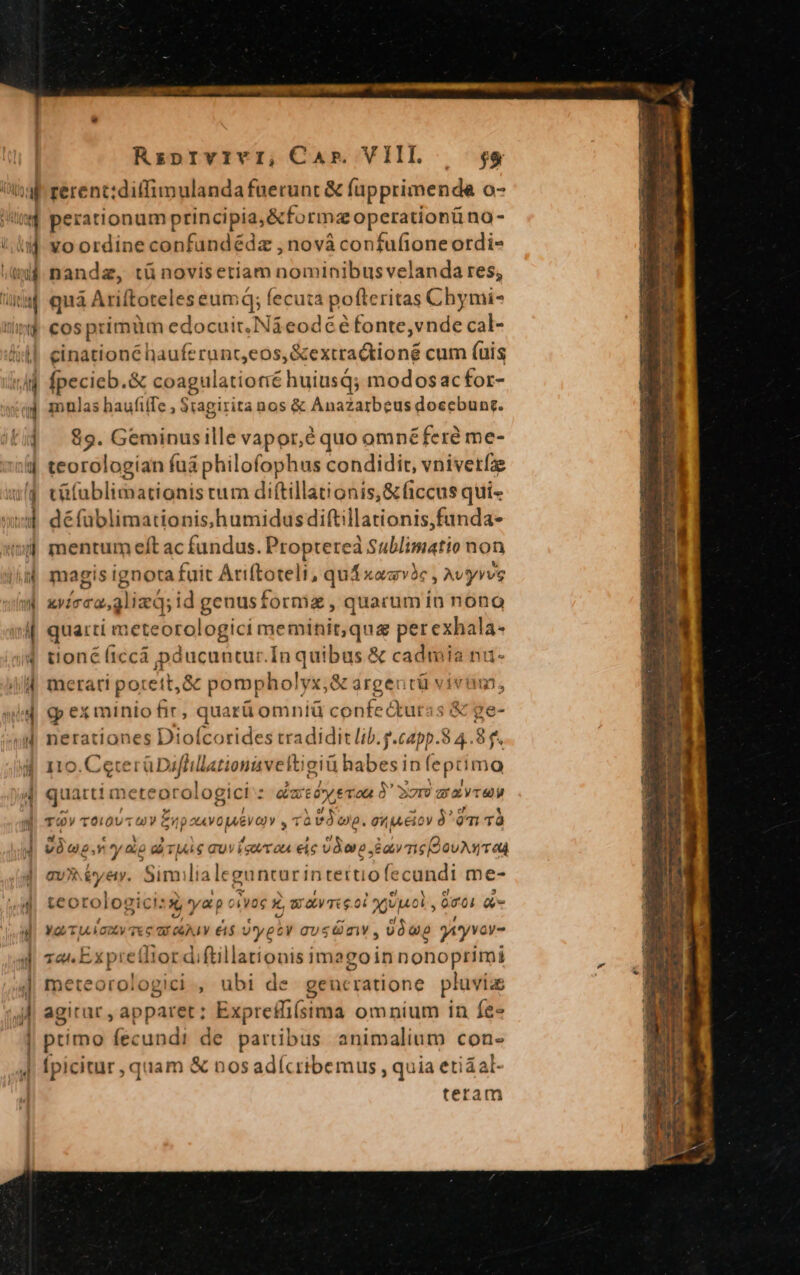 REDIVIVI, CAP. VIII. 59
rerent: dissimulanda fuerunt & supprimenda o-
perationum principia, & formæ operationū no-
vo ordine confundēdæ, novâ confusione ordi-
nandæ, tū novis etiam nominibus velanda res,
quā Aristoteles eumq́; secuta posteritas Chymi-
cos primùm edocuit. Nā eodē è fonte, vnde cal-
cinationē hauserunt, eos, & extractionē cum suis
specieb. & coagulationē huiusq́; modos ac for-
mulas hausisse, Stagirita nos & Anazarbeus docebunt.
89. Geminus ille vapor, è quo omnē ferè me-
teorologian suā philosophus condidit, vniversæ
tū sublimationis tum distillationis, & siccus qui-
dē sublimationis, humidus distillationis, funda-
mentum est ac fundus. Proptereà Sublimatio non
magis ignota fuit Aristoteli, quā καπνὸς, λιγνὺς
κνίσσα, aliæq́; id genus formæ, quarum in nono
quarti meteorologici meminit, quæ per exhala-
tionē siccā ꝓducuntur. In quibus & cadmia nu-
merari poteit, & pompholyx, & argentū vivum,
ꝙ ex minio fit, quarū omniū confecturas & ge-
nerationes Dioscorides tradidit lib. 5. capp. 84. 85.
110. Ceterū Distillationis vestigiū habes in septimo
quarti meteorologici: ἀπέρχεται δ' ἀπὸ πάντων
τῶν τοιούτων ξηραινομένων, τὸ ὕδωρ. σημεῖον δ' ὅτι τὸ
ὕδωρ, ἡ γὰρ ἀτμὶς συνίσταται εἰς ὕδωρ, ἐάν τις βούληται
συλλέγειν. Similia leguntur in tertio secundi me-
teorologici: καὶ γὰρ οἶνος καὶ πάντες οἱ χυμοὶ, ὅσοι ἂν
ἀτμίσαντες πάλιν εἰς ὑγρὸν συστῶσιν, ὕδωρ γίγνον-
ται. Expressior distillationis imago in nono primi
meteorologici, ubi de generatione pluviæ
agitur, apparet: Expressissima omnium in se-
primo secundi de partibus animalium con-
spicitur, quam & nos adscribemus, quia etiā al-
teram